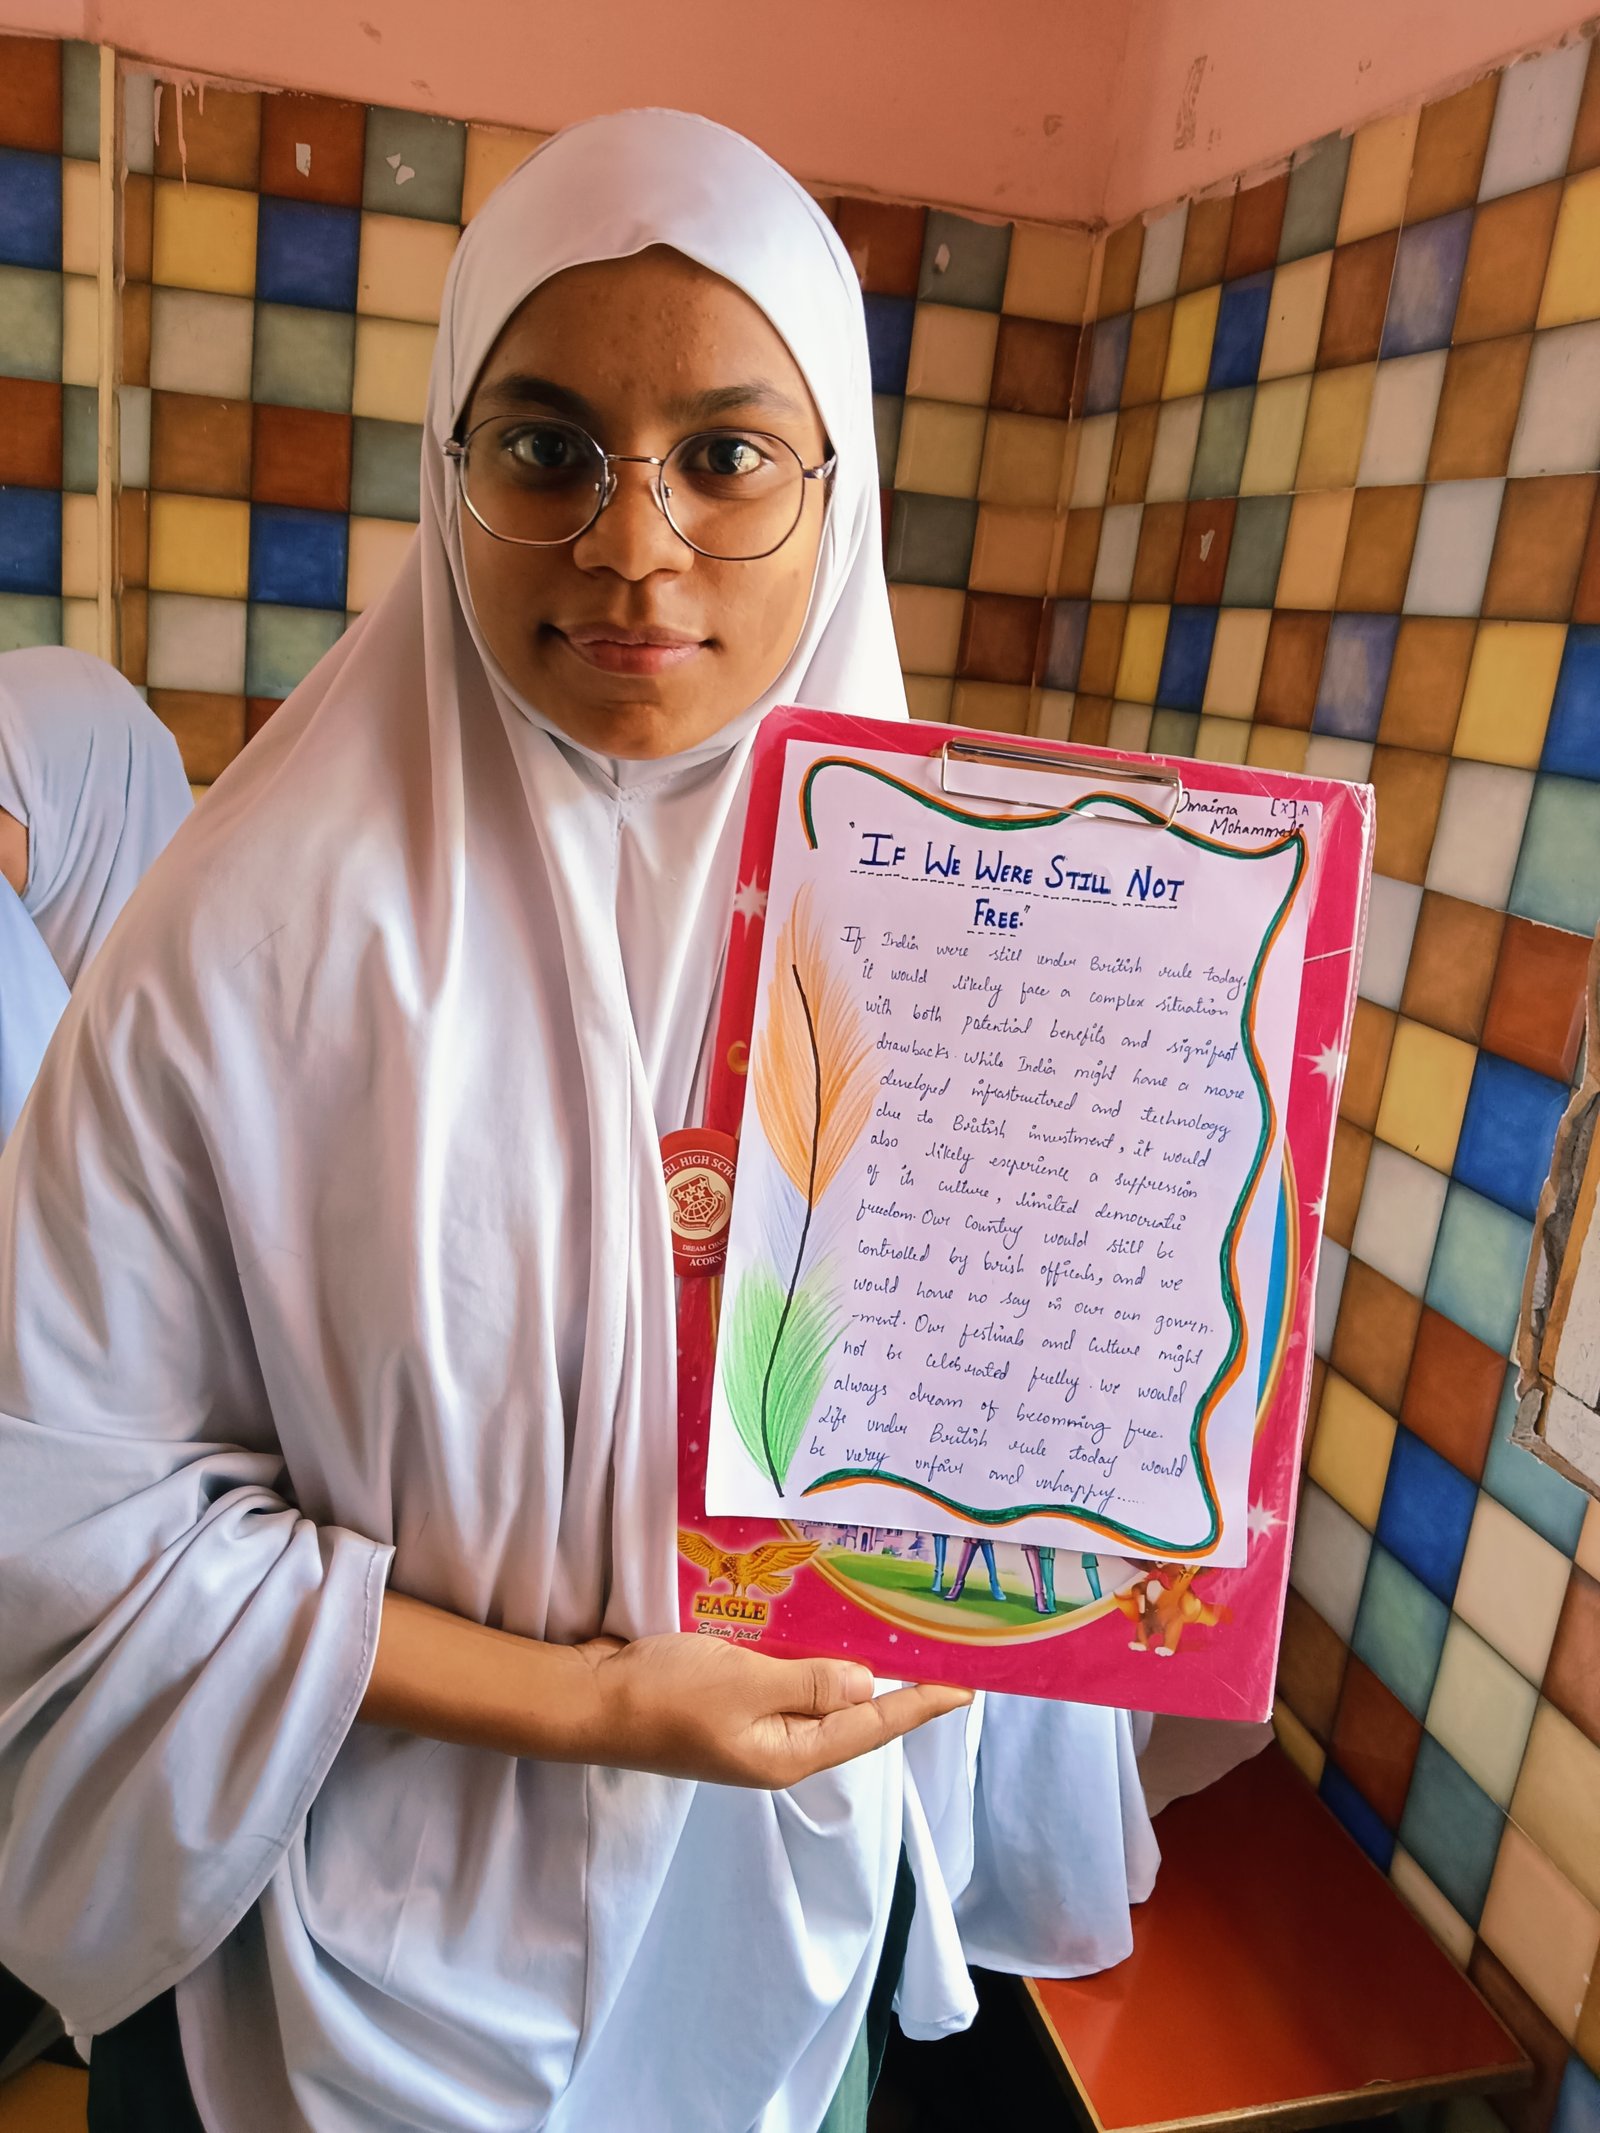 Omaima [X].A
Mohammedi
"IF WE WERE STILL NOT
FREE."
If India were still under British rule today,
it would likely face a complex situation
with both potential benefits and significant
drawbacks. While India might have a more
developed infrastructured and technology
due to British investment, it would
also likely experience a suppression
of its culture, limited democratic
freedom. Our Country would still be
controlled by british officals, and we
would have no say in our own govern-
-ment. Our festivals and culture might
not be celebrated freely. We would
always dream of becomming free.
Life under British rule today would
be very unfair and unhappy......
EL HIGH SCHO
DREAM
ACORN
EAGLE
Exam pad